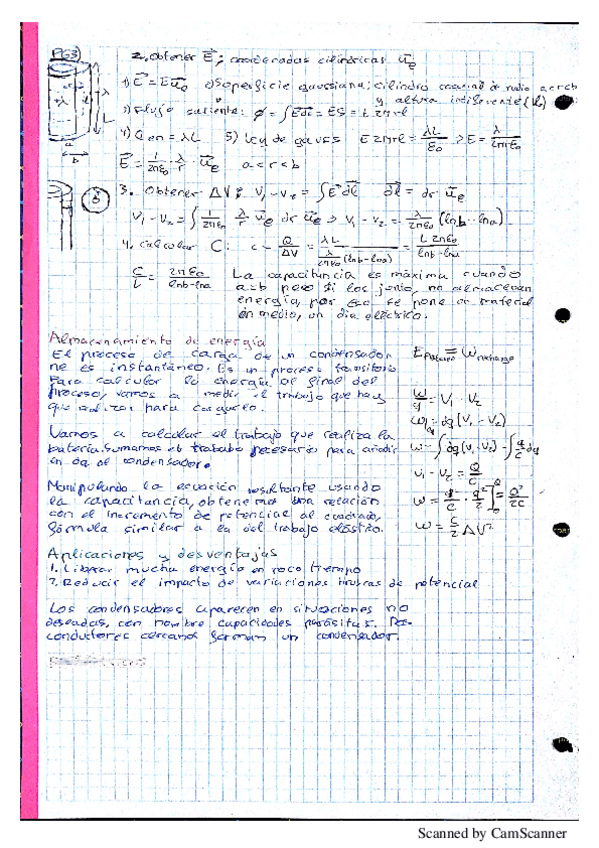 PG3
2. Obtener E⃗; coordenadas cilíndricas u⃗e
1) E⃗ = E u⃗e 2) Superficie gaussiana: cilindro de radio a<r<b
y altura indiferente (L)
3) Flujo saliente: Φ = ∫E⃗ds⃗ = ES = E 2πrL
4) Q en = λL 5) Ley de gauss E2πrL = λL/ε0 → E = λ/2πrε0
E⃗ = 1/2πε0 · λ/r · u⃗e a<r<b
3. Obtener ΔV; V1 - V2 = ∫E⃗dl⃗ dl⃗ = dr u⃗e
V1 - V2 = ∫ 1/2πε0 λ/r u⃗e dr u⃗e → V1 - V2 = λ/2πε0 (lnb - lna)
4. calcular C: C = Q/ΔV = λL / λ/2πε0 (lnb-lna) = L 2πε0/lnb-lna
C/L = 2πε0/lnb-lna La capacitancia es máxima cuando
a=b pero si los junto, no almacenan
energía, por eso se pone un material
en medio, un dieléctrico.
Almacenamiento de energía
El proceso de carga de un condensador
no es instantáneo. Es un proceso transitorio
Para calcular la energía al final del
proceso, vamos a medir el trabajo que hay
que realizar para cargarlo.
Vamos a calcular el trabajo que realiza la
batería. Sumamos el trabajo necesario para añadir
un dq al condensador.
Manipulando la ecuación resultante usando
la capacitancia, obtenemos una relación
con el incremento de potencial al cuadrado,
fórmula similar a la del trabajo elástico.
W/q = V1 - V2
Wdq = dq (V1 - V2)
W = ∫dq (V1-V2) = ∫ q/C dq
V1 - V2 = Q/C
= Q²/2C
W = C/2 ΔV²
Aplicaciones y desventajas
1. Liberar mucha energía en poco tiempo
2. Reducir el impacto de variaciones bruscas de potencial
Los condensadores aparecen en situaciones no
deseadas, con nombre capacidades parásitas. Dos
conductores cercanos forman un condensador.
Scanned by CamScanner